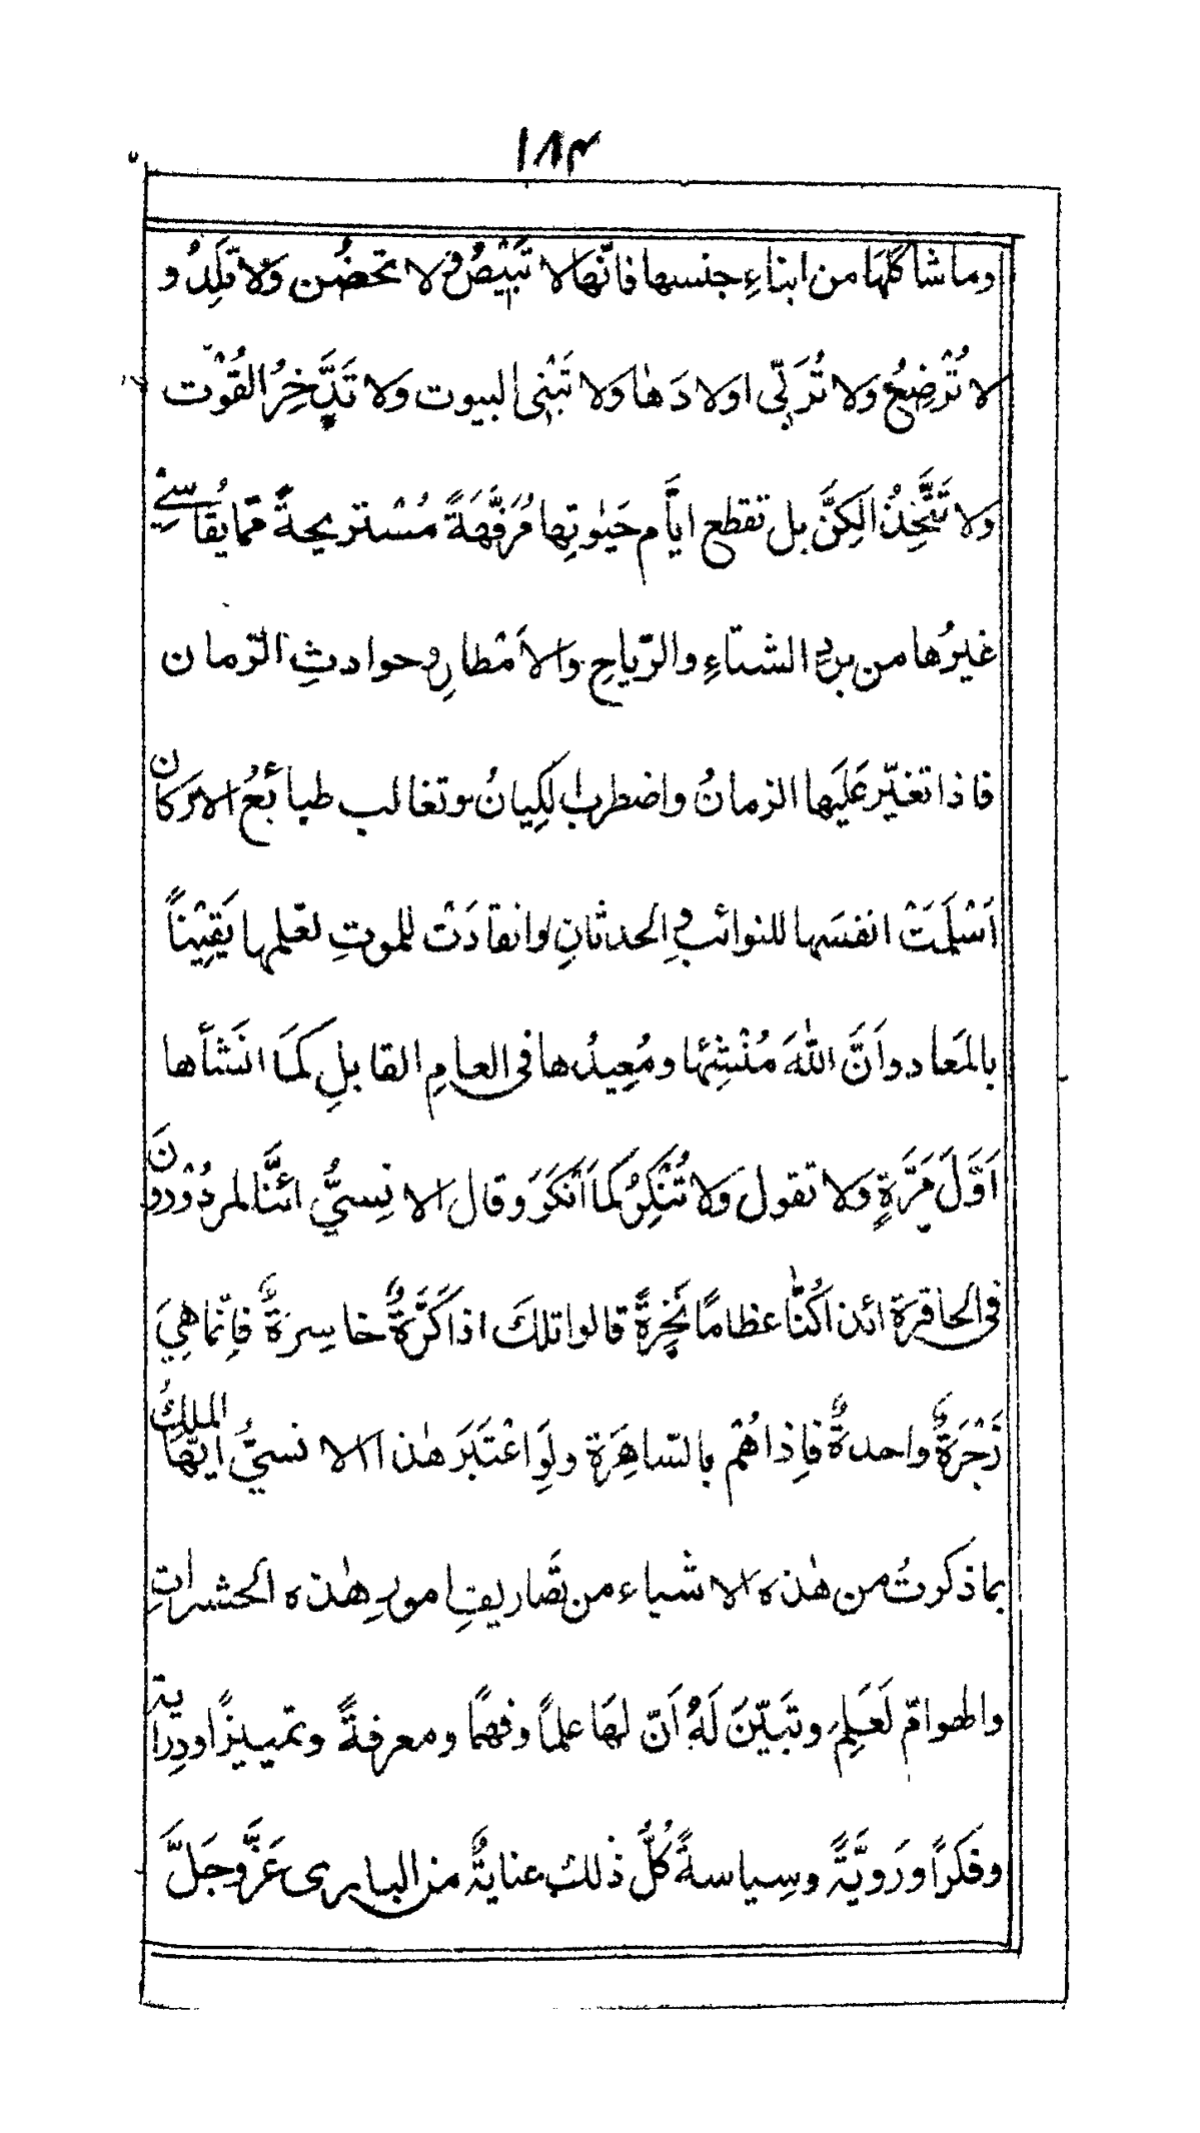 ١٨٣
وما شاكَلَهَا من ابناءِ جنسها فانّها لا تَبَيْضُ و لا تحضُن وَلا تَلِدُ و
لا تُرْضِعُ وَلا تُرَبّى اولادَهَا وَلا تَبْنى البيوت وَلا تَدَّخِرُ القُوْت
وَلا تَتَّخِذُ الكِنَّ بل تقطع ايَّام حَيٰوتِها مُرَفَّهَةً مُسْتَريحةً ممّا يُقَاسِي
غيرُها من بردِ الشتاءِ والرّياحِ والاَمْطارِ وحوادثِ الزمان
فاذا تغيّر عَلَيها الزمانُ واضطربَ الكِيانُ وتغالب طبائعُ الاركان
اَسْلَمَتْ انفسَها للنوائب والحدثانِ وانقادَتْ للموتِ لعلمها يَقِيْناً
بالمَعاد واَنَّ اللهَ مُنْشِئها ومُعِيدُها فى العامِ القابلِ كَمَا انَشَأها
اَوَّلَ مَرَّةٍ وَلا تقول وَلا تُنْكِرُ كَمَا اَنْكَرَ وَقال الانِسيُّ ائنَّا لمردُوْدُونَ
فى الحافرَة ائذا كُنَّا عظامًا نَخِرةً قالوا تلكَ اذا كَرَّةٌ خاسِرَةٌ فاِنّما هِيَ
زَجْرَةٌ واحدةٌ فاِذا هُمْ بالسّاهِرَة ولَوِ اعْتَبَرَ هٰذا الانسيُّ ايّهَا الملكُ
بما ذكرتُ من هٰذه الاشياء من تَصَاريفِ امورِ هٰذه الحشراتِ
والهوامّ لَعَلِمَ وتَبَيّنَ لَهُ اَنّ لهَا علماً وفهمًا ومعرفةً وتمييزًا ودِراية
وفكرًا ورَوِيَّةً وسِياسةً كُلُّ ذلك عنايةٌ من البارى عَزَّ وجَلَّ